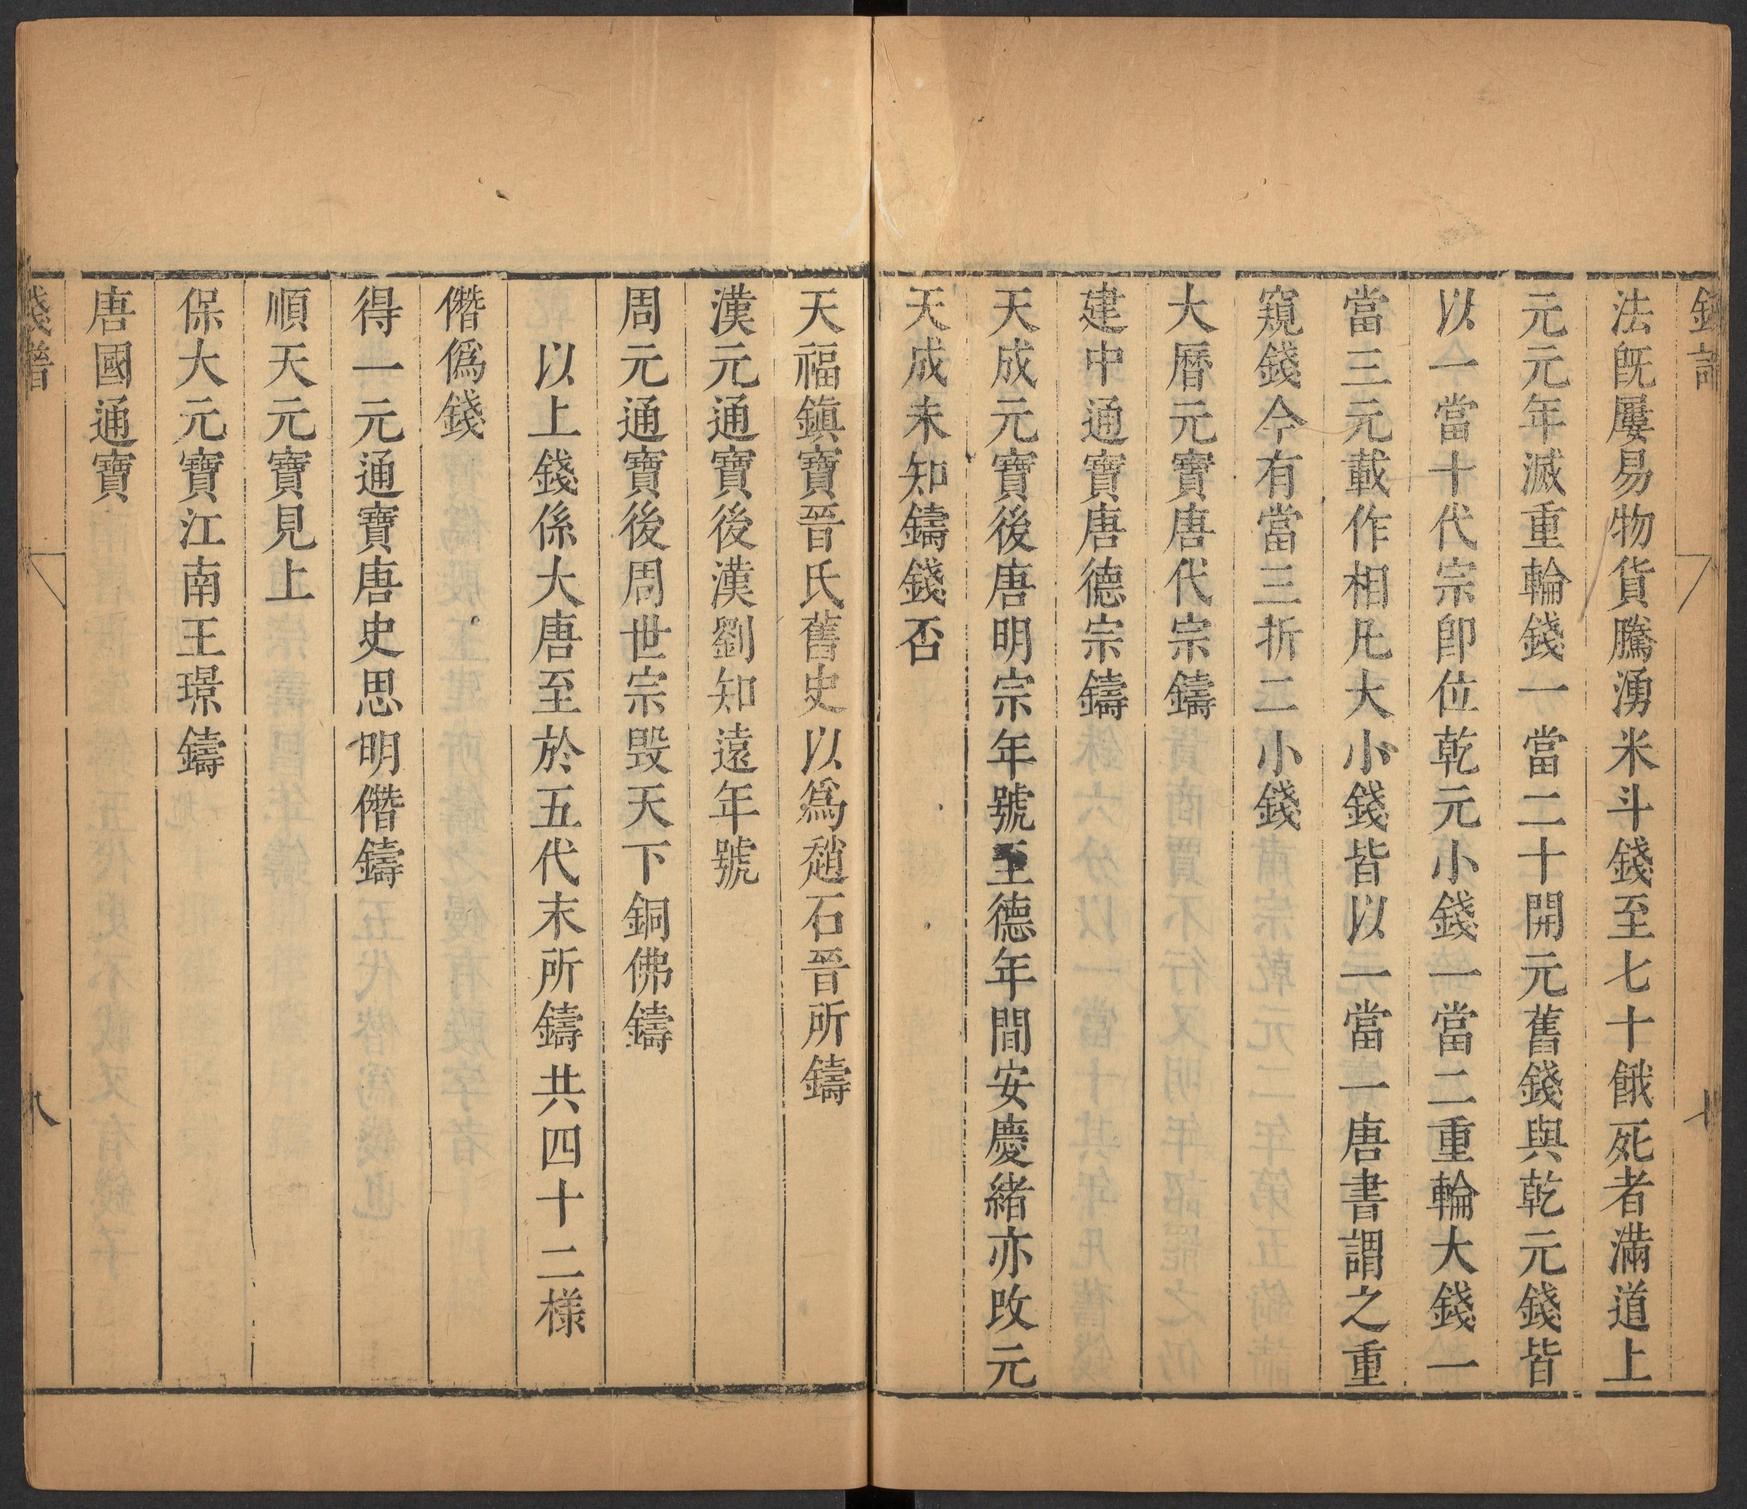 錢譜
七
法旣屢易物貨騰湧米斗錢至七十餓死者滿道上
元元年滅重輪錢一當二十開元舊錢與乾元錢皆
以一當十代宗卽位乾元小錢一當二重輪大錢一
當三元載作相凡大小錢皆以一當一唐書謂之重
窺錢今有當三折二小錢
大曆元寶唐代宗鑄
建中通寶唐德宗鑄
天成元寶後唐明宗年號至德年間安慶緒亦改元
天成未知鑄錢否
天福鎮寶晉氏舊史以爲趙石晉所鑄
漢元通寶後漢劉知遠年號
周元通寶後周世宗毀天下銅佛鑄
以上錢係大唐至於五代末所鑄共四十二樣
僭僞錢
得一元通寶唐史思明僭鑄
順天元寶見上
保大元寶江南王璟鑄
唐國通寶
錢譜
八